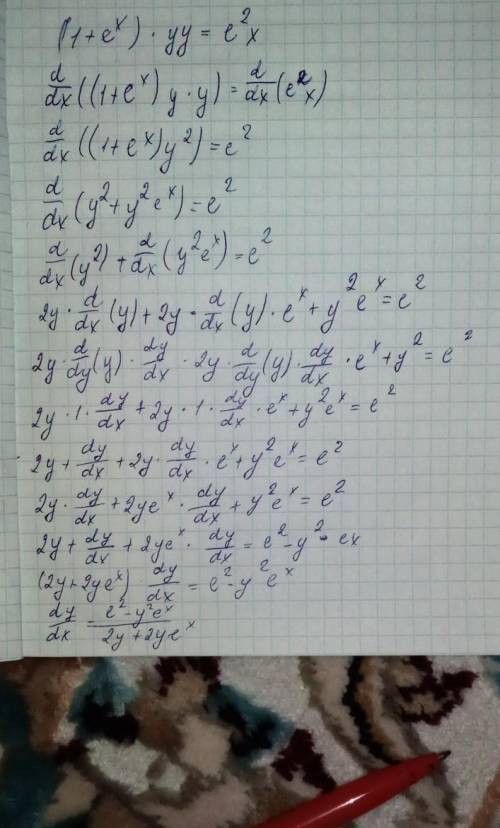 (1+e^x) · yy = e^2x
d/dx ((1+e^x) y · y) = d/dx (e^2x)
d/dx ((1+e^x)y^2) = e^2
d/dx (y^2 + y^2 e^x) = e^2
d/dx (y^2) + d/dx (y^2 e^x) = e^2
2y · d/dx (y) + 2y · d/dx (y) · e^x + y^2 e^x = e^2
2y · d/dy (y) · dy/dx · 2y · d/dy (y) · dy/dx · e^x + y^2 = e^2
2y · 1 · dy/dx + 2y · 1 · dy/dx · e^x + y^2 e^x = e^2
2y + dy/dx + 2y · dy/dx · e^x + y^2 e^x = e^2
2y · dy/dx + 2ye^x · dy/dx + y^2 e^x = e^2
2y + dy/dx + 2ye^x · dy/dx = e^2 - y^2 · ex
(2y + 2ye^x) dy/dx = e^2 - y^2 e^x
dy/dx = e^2 - y^2 e^x / 2y + 2ye^x